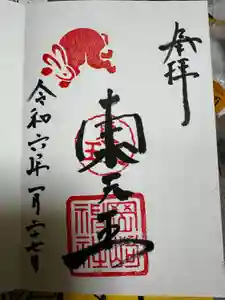 奉拝
東天王
神社
令和六年一月二十七日